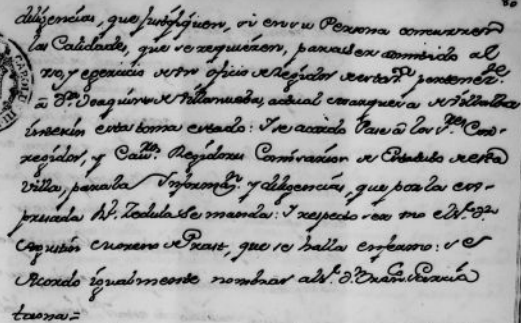 diligencias, que justifiquen, si en su Persona concurren
las Calidades, que se requieren, para ser admitido al
uso, y egercicio de un oficio de Regidor de esta V.ª pertenez.te
a D.ª Joaquina de Villanueba, actual Marquesa de Villalba
interin esta toma estado: Y se acordó Pase a los S.res Cor-
regidor, y Cav.ros Regidores Comisarios de Estatuto de esta
Villa, para la Informaz.n y diligencias, que por la es-
presada R.l Zedula se manda: Y respecto ser uno el S.r D.n
Agustin Moreno de Prast, que se halla enfermo: se
Acordó igualmente nombrar al S.r D.n Fran.co Garcia
taona=
CAROLU III